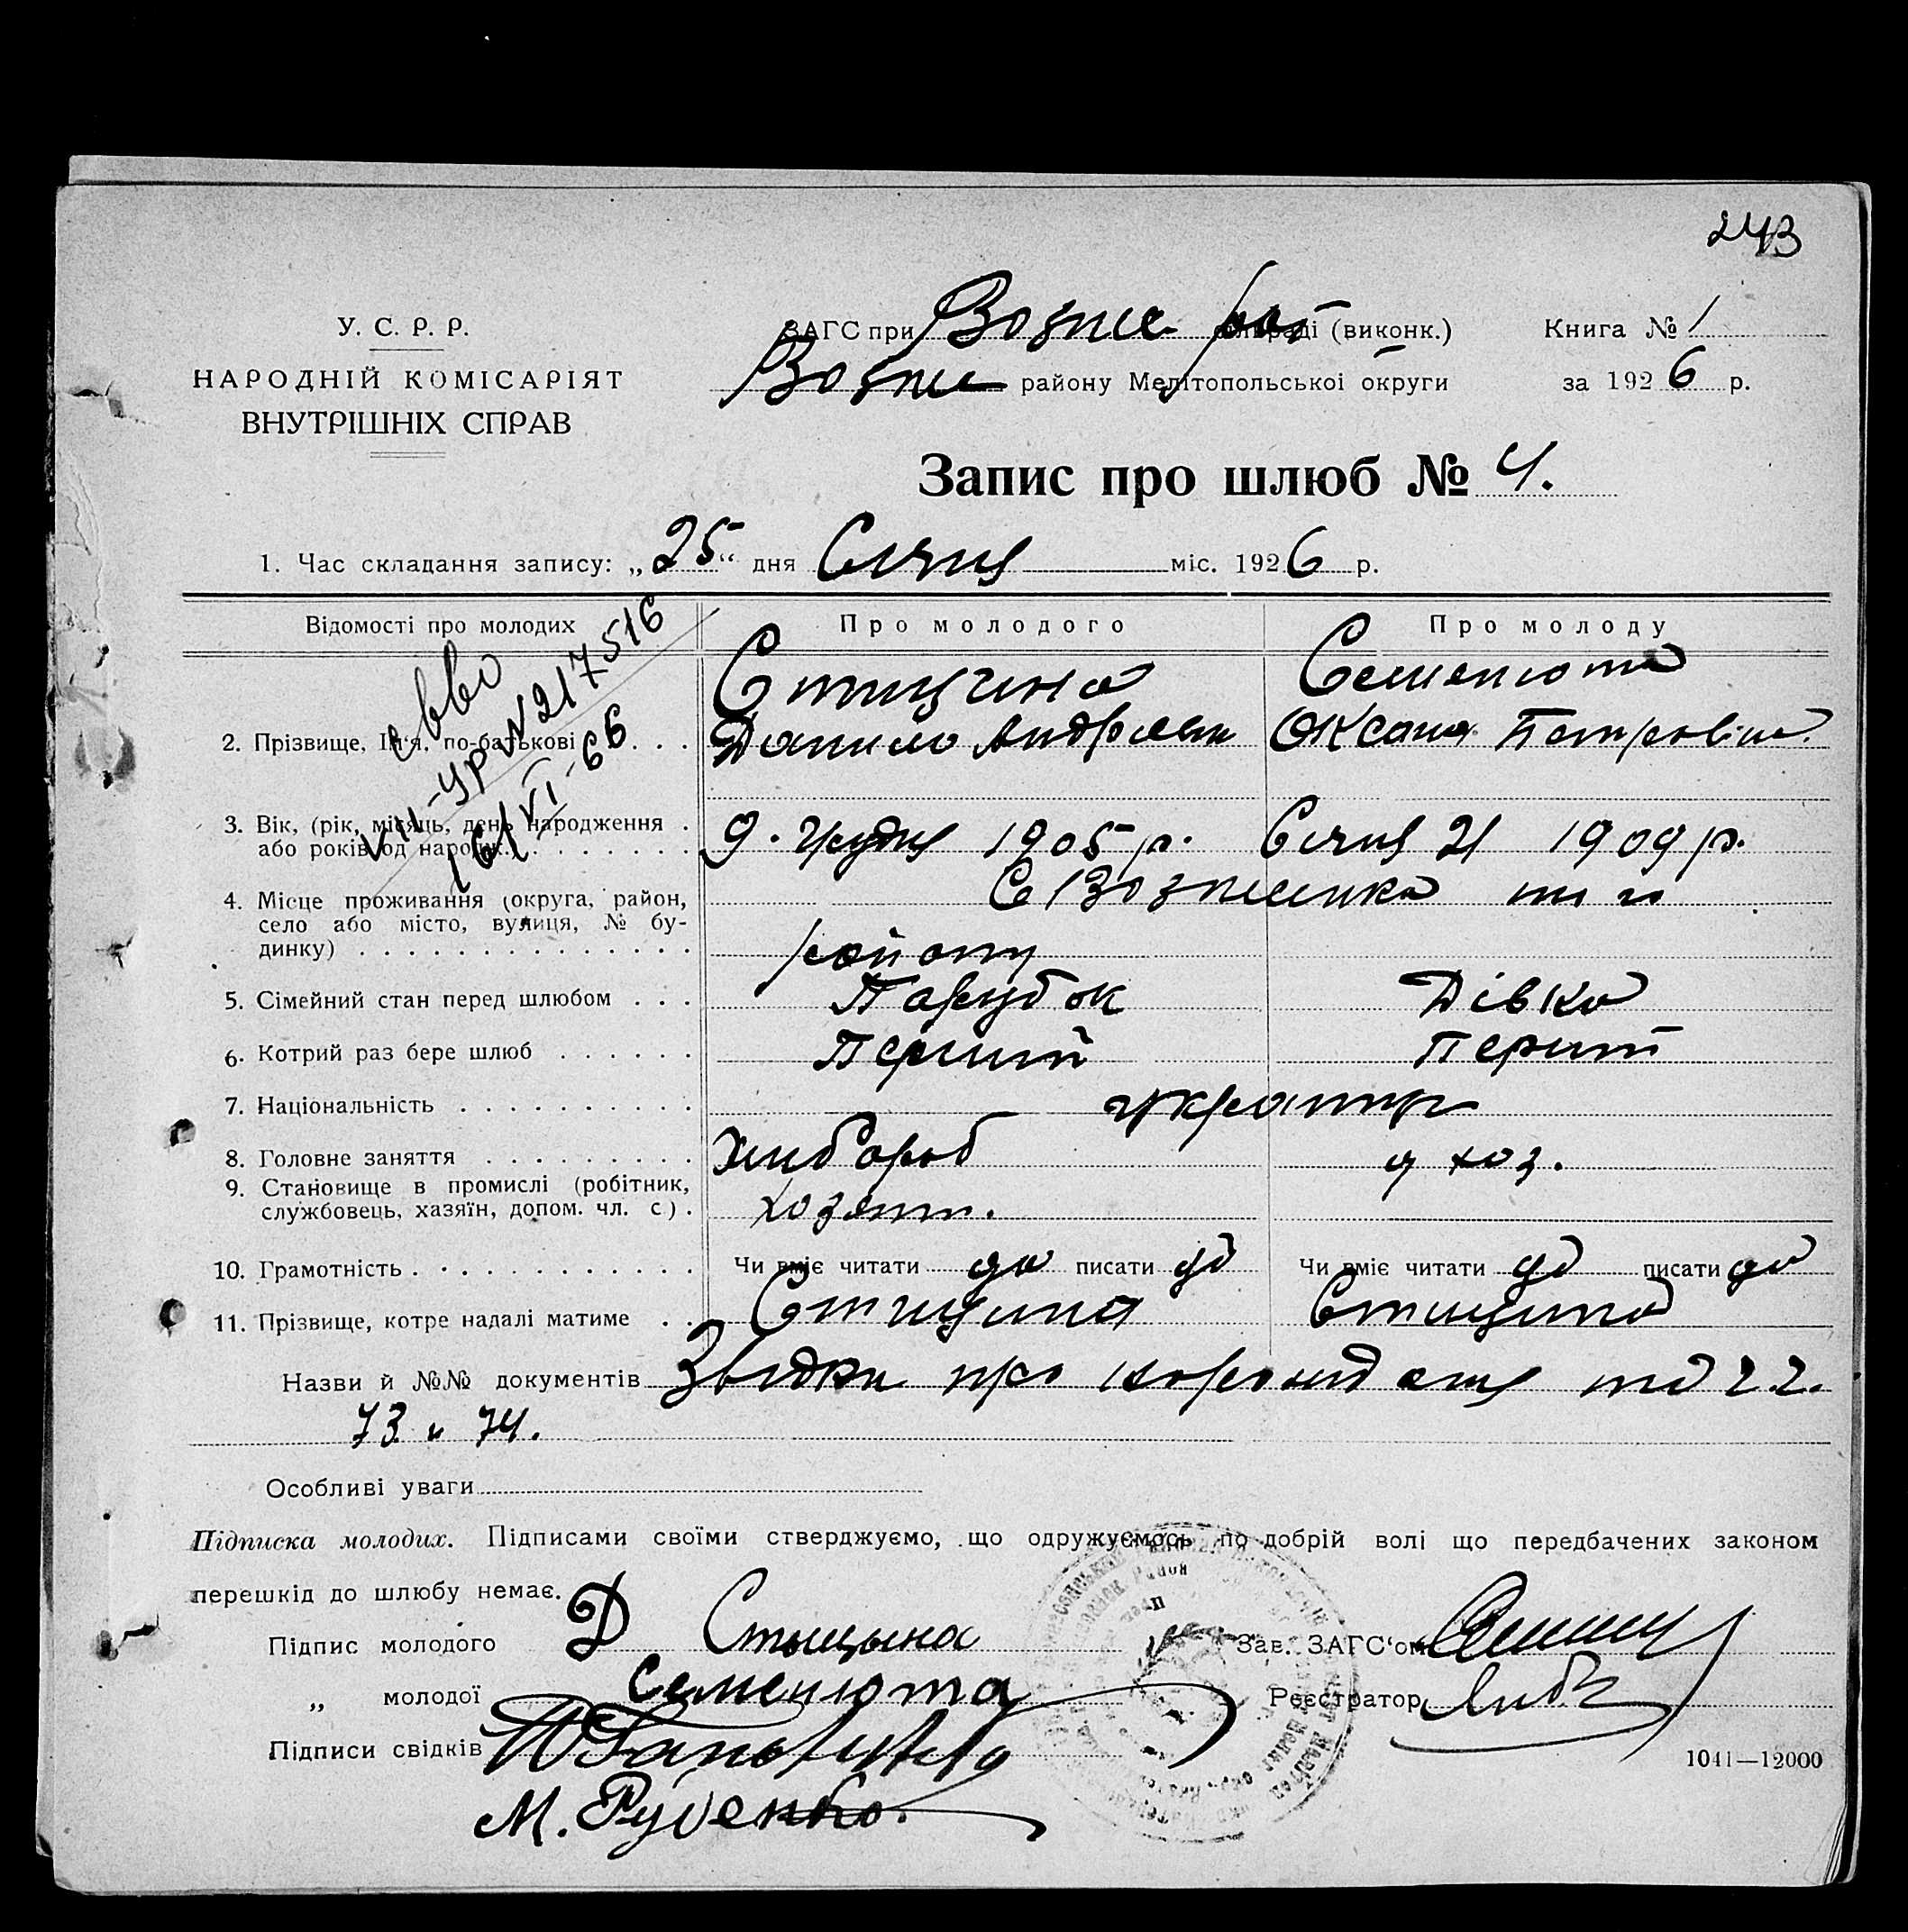 243
У. С. Р. Р.
НАРОДНІЙ КОМІСАРІЯТ
ВНУТРІШНІХ СПРАВ
ЗАГС при Вознес. рай (виконк.)
Книга № 1
Возне району Мелітопольської округи
за 1926 р.
Запис про шлюб № 4.
1. Час складання запису: „25“ дня Січня міс. 1926 р.
Відомості про молодих
Про молодого
Про молоду
с-во
VII-УР N 217516
16/VI-66
2. Прізвище, Ім'я, по-батькові . . .
Стицина
Данило Андріев
Семенюта
Оксана Петровна
3. Вік, (рік, місяць, день народження .
або років од народж. . . . . . . . .
9. Грудня 1905 р.
Січня 21 1909 р.
4. Місце проживання (округа, район,
село або місто, вулиця, № бу-
динку) . . . . . . . . . . . . . .
С Вознесенка того
району
5. Сімейний стан перед шлюбом . . .
Парубок
Дівка
6. Котрий раз бере шлюб . . . . . .
Перший
Перший
7. Національність . . . . . . . . . .
8. Головне заняття . . . . . . . . .
Хлібороб
д хоз.
9. Становище в промислі (робітник,
службовець, хазяїн, допом. чл. с.) .
хозяин.
10. Грамотність . . . . . . . . . . . .
Чи вміє читати да писати да
Чи вміє читати да писати да
11. Прізвище, котре надалі матиме . .
Стицина
Стицина
Назви й №№ документів Звідки про народження
73 и 74.
Особливі уваги
Підписка молодих. Підписами своїми стверджуємо, що одружуємось по добрій волі що передбачених законом
перешкід до шлюбу немає.
Підпис молодого Д Стыцына
Зав. ЗАГС'ом
„ молодої Семенюта
Реєстратор
Підписи свідків
М. Руденко.
1041—12000